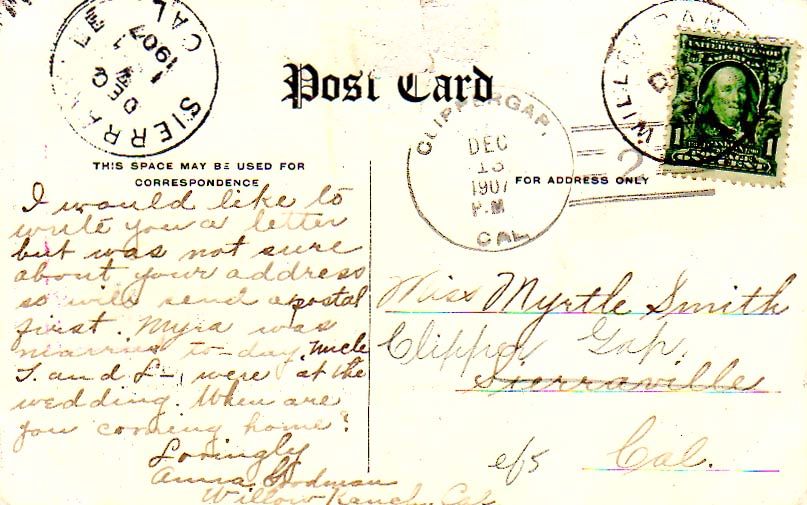 SIERRAVILLE
DEC
1907
CAL
Post Card
CLIPPERGAP,
DEC
13
1907
P.M.
CAL.
2
WILLOW RANCH
UNITED STATES OF
AMERICA
1
1
ONE CENT
THIS SPACE MAY BE USED FOR
CORRESPONDENCE
FOR ADDRESS ONLY
I would like to
write you a letter
but was not sure
about your address
so will send a postal
first. Myra was
married to-day. Uncle
S. and L— were at the
wedding. When are
you coming home?
Lovingly
Anna Goodman
Willow Ranch, Cal
Miss Myrtle Smith
Clipper Gap,
Sierraville
Cal.